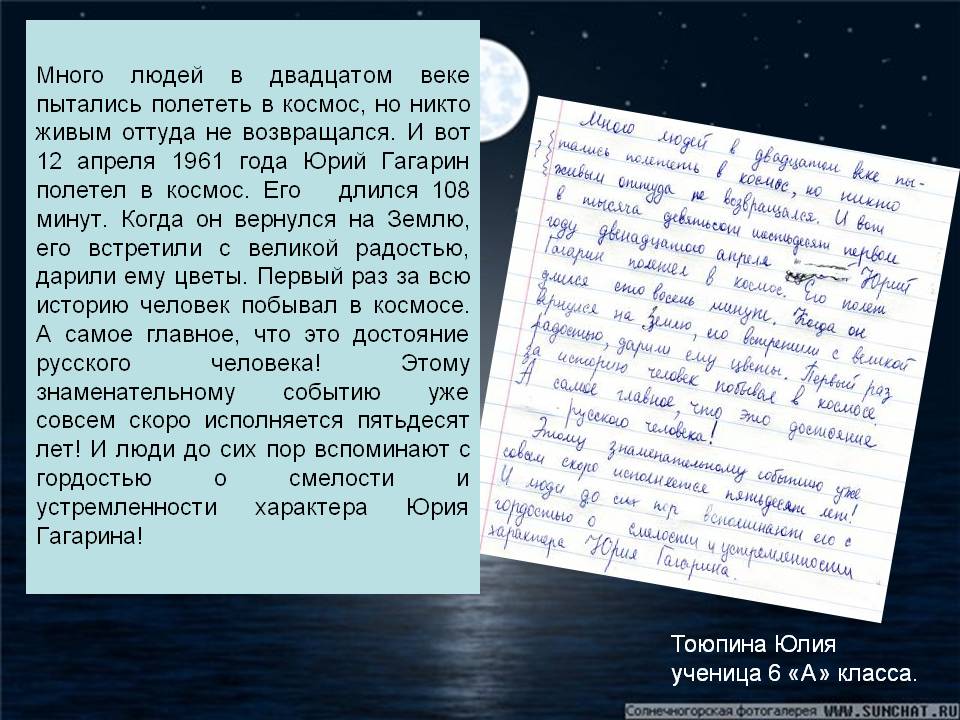 Много людей в двадцатом веке
пытались полететь в космос, но никто
живым оттуда не возвращался. И вот
12 апреля 1961 года Юрий Гагарин
полетел в космос. Его длился 108
минут. Когда он вернулся на Землю,
его встретили с великой радостью,
дарили ему цветы. Первый раз за всю
историю человек побывал в космосе.
А самое главное, что это достояние
русского человека! Этому
знаменательному событию уже
совсем скоро исполняется пятьдесят
лет! И люди до сих пор вспоминают с
гордостью о смелости и
устремленности характера Юрия
Гагарина!
Много людей в двадцатом веке пы-
тались полететь в космос, но никто
живым оттуда не возвращался. И вот
в тысяча девятьсот шестьдесят первом
году двенадцатого апреля Юрий
Гагарин полетел в космос. Его полет
длился сто восемь минут. Когда он
вернулся на Землю, его встретили с великой
радостью, дарили ему цветы. Первый раз
за историю человек побывал в космосе.
А самое главное, что это достояние
русского человека!
Этому знаменательному событию уже
совсем скоро исполняется пятьдесят лет!
И люди до сих пор вспоминают его с
гордостью о смелости и устремленности
характера Юрия Гагарина.
Тоюпина Юлия
ученица 6 «А» класса.
Солнечногорская фотогалерея WWW.SUNCHAT.RU